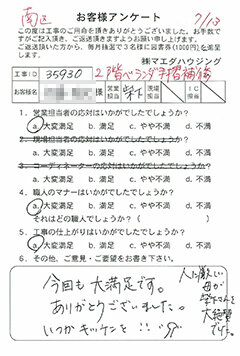 南区
7/13
お客様アンケート
この度は工事のご用命を頂きありがとうございました。お手数で
すがご記入頂き、ご返送頂きますようお願い申し上げます。
ご返送頂いた方から、毎月抽選で3名様に図書券(1000円)を進呈
します。
㈱マエダハウジング
工事ID 35930 2階ベランダ手摺補修
お客様名 様 営業担当 現場担当 IC担当
1. 営業担当者の応対はいかがでしたでしょうか?
a. 大変満足 b. 満足 c. やや不満 d. 不満
2. 現場担当者の応対はいかがでしたでしょうか?
a. 大変満足 b. 満足 c. やや不満 d. 不満
3. コーディネーターの応対はいかがでしたでしょうか?
a. 大変満足 b. 満足 c. やや不満 d. 不満
4. 職人のマナーはいかがでしたでしょうか?
a. 大変満足 b. 満足 c. やや不満 d. 不満
それはどの職人でしょうか?( )
5. 工事の仕上がりはいかがでしたでしょうか?
a. 大変満足 b. 満足 c. やや不満 d. 不満
6. その他、ご意見・ご要望をお書き下さい。
今回も大満足です。
ありがとうございました。
いつかキッチンを!!
人に厳しい
母が
大絶賛
でした。